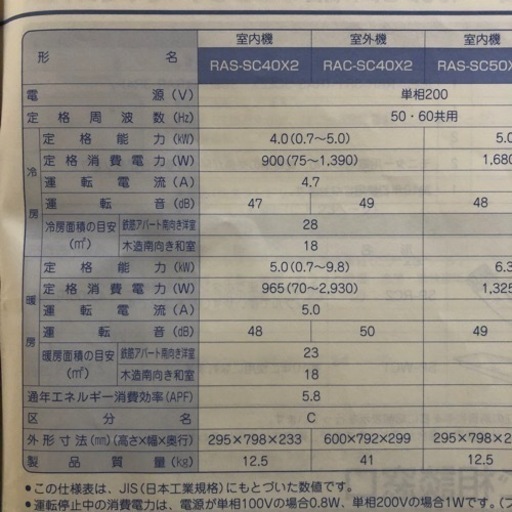 形 名 室内機 室外機 室内機
RAS-SC40X2 RAC-SC40X2 RAS-SC50X
電源(V) 単相200
定格周波数(Hz) 50・60共用
冷房
定格能力(kW) 4.0(0.7~5.0) 5.0
定格消費電力(W) 900(75~1,390) 1,680
運転電流(A) 4.7
運転音(dB) 47 49 48
冷房面積の目安(㎡) 鉄筋アパート南向き洋室 28
木造南向き和室 18
暖房
定格能力(kW) 5.0(0.7~9.8) 6.3
定格消費電力(W) 965(70~2,930) 1,325
運転電流(A) 5.0
運転音(dB) 48 50 49
暖房面積の目安(㎡) 鉄筋アパート南向き洋室 23
木造南向き和室 18
通年エネルギー消費効率(APF) 5.8
区分名 C
外形寸法(㎜)(高さ×幅×奥行) 295×798×233 600×792×299 295×798×2
製品質量(kg) 12.5 41 12.5
●この仕様表は、JIS(日本工業規格)にもとづいた数値です。
●運転停止中の消費電力は、電源が単相100Vの場合0.8W、単相200Vの場合1Wです。(プ